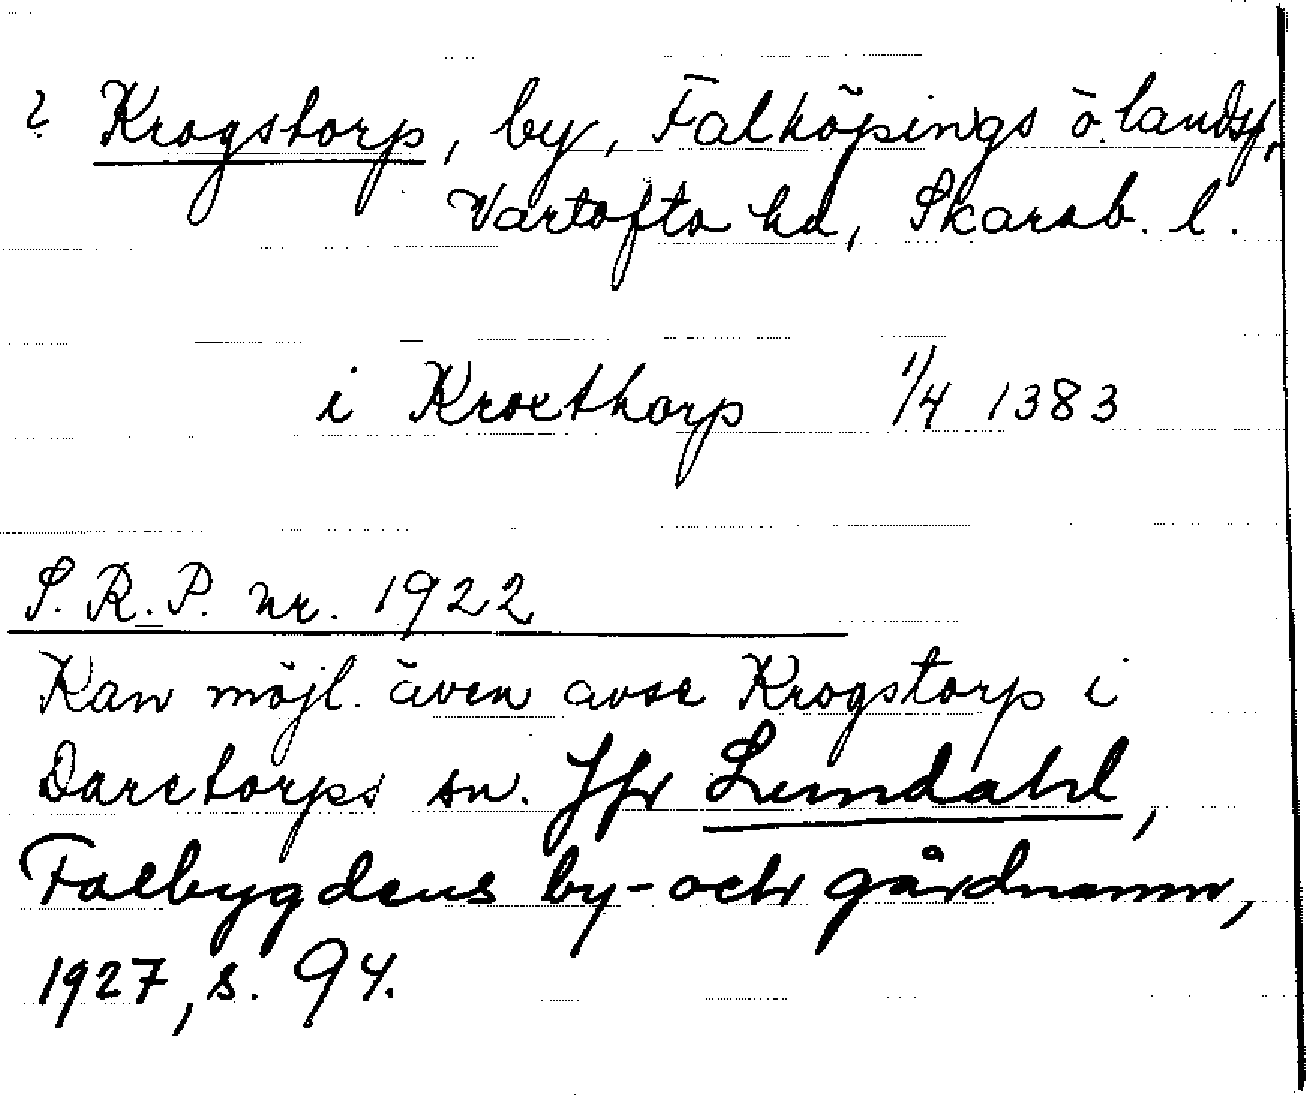 ? Krogstorp, by, Falköpings ö. landsf.
Vartofta hd, Skarab. l.
i Krocthorp 1/4 1383
S. R. P. nr. 1922
Kan möjl. även avse Krogstorp i
Daretorps sn. Jfr Lundahl,
Falbygdens by- och gårdnamn,
1927, s. 94.